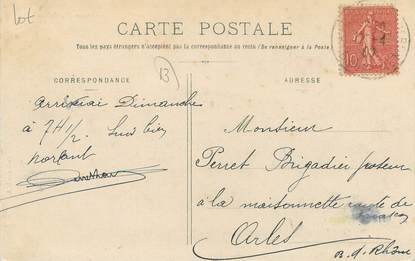 lot
CARTE POSTALE
Tous les pays étrangers n'acceptent pas la correspondance au recto (Se renseigner à la Poste)
CORRESPONDANCE
ADRESSE
13
10
Arriverai Dimanche
à 7H 1/2.
portant
Monsieur
Perret Brigadier poseur
à la maisonnette route de
Arles
B. d. Rhône